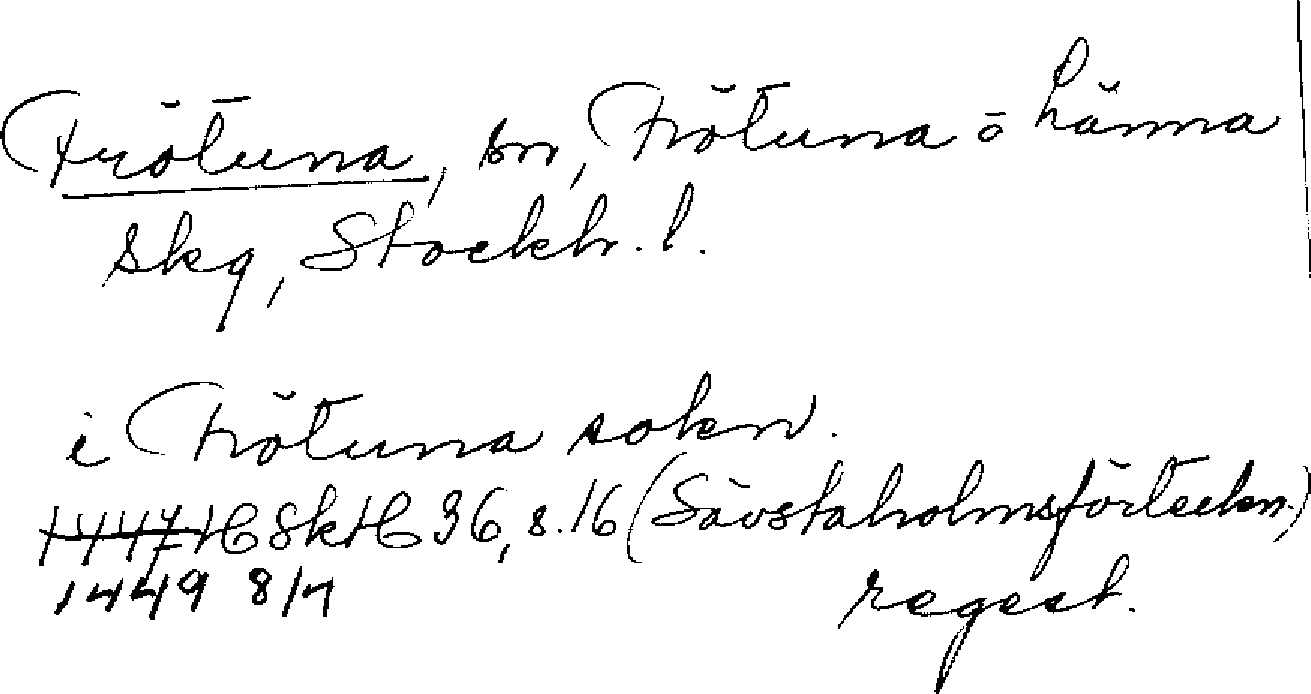 Frötuna, by, Frötuna o Länna
skg, Stockh. l.
i Frötuna sokn.
1447 HSkH 36, s. 16 (Sävstaholmsförteckn.)
1449 8/7 regest.